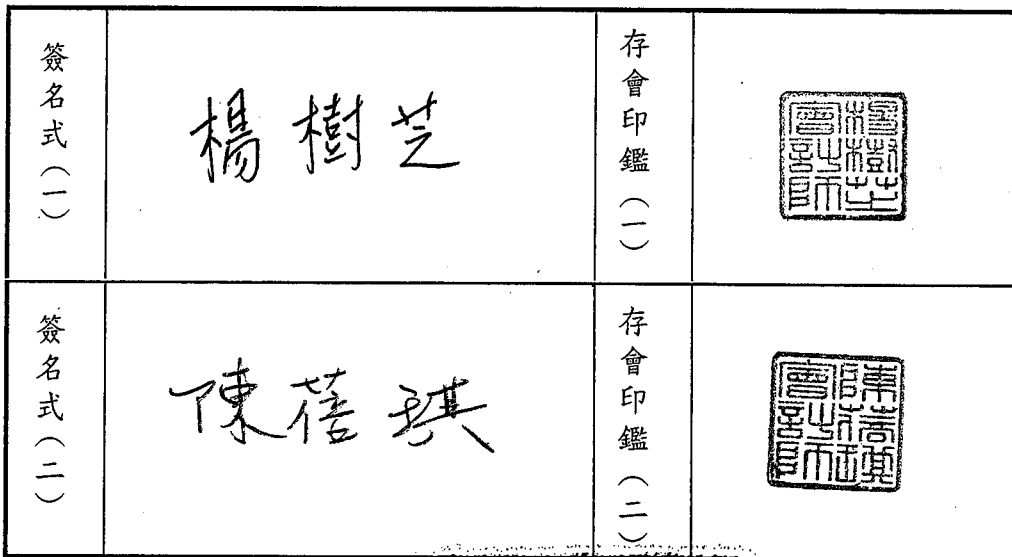 簽名式（一）
楊樹芝
存會印鑑（一）
楊樹芝
會計師
簽名式（二）
陳蓓琪
存會印鑑（二）
陳蓓琪
會計師